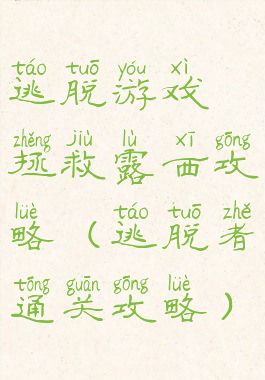 táo tuō yóu xì
逃脱游戏
zhěng jiù lù xī gōng
拯救露西攻
lüè táo tuō zhě
略（逃脱者
tōng guān gōng lüè
通关攻略）